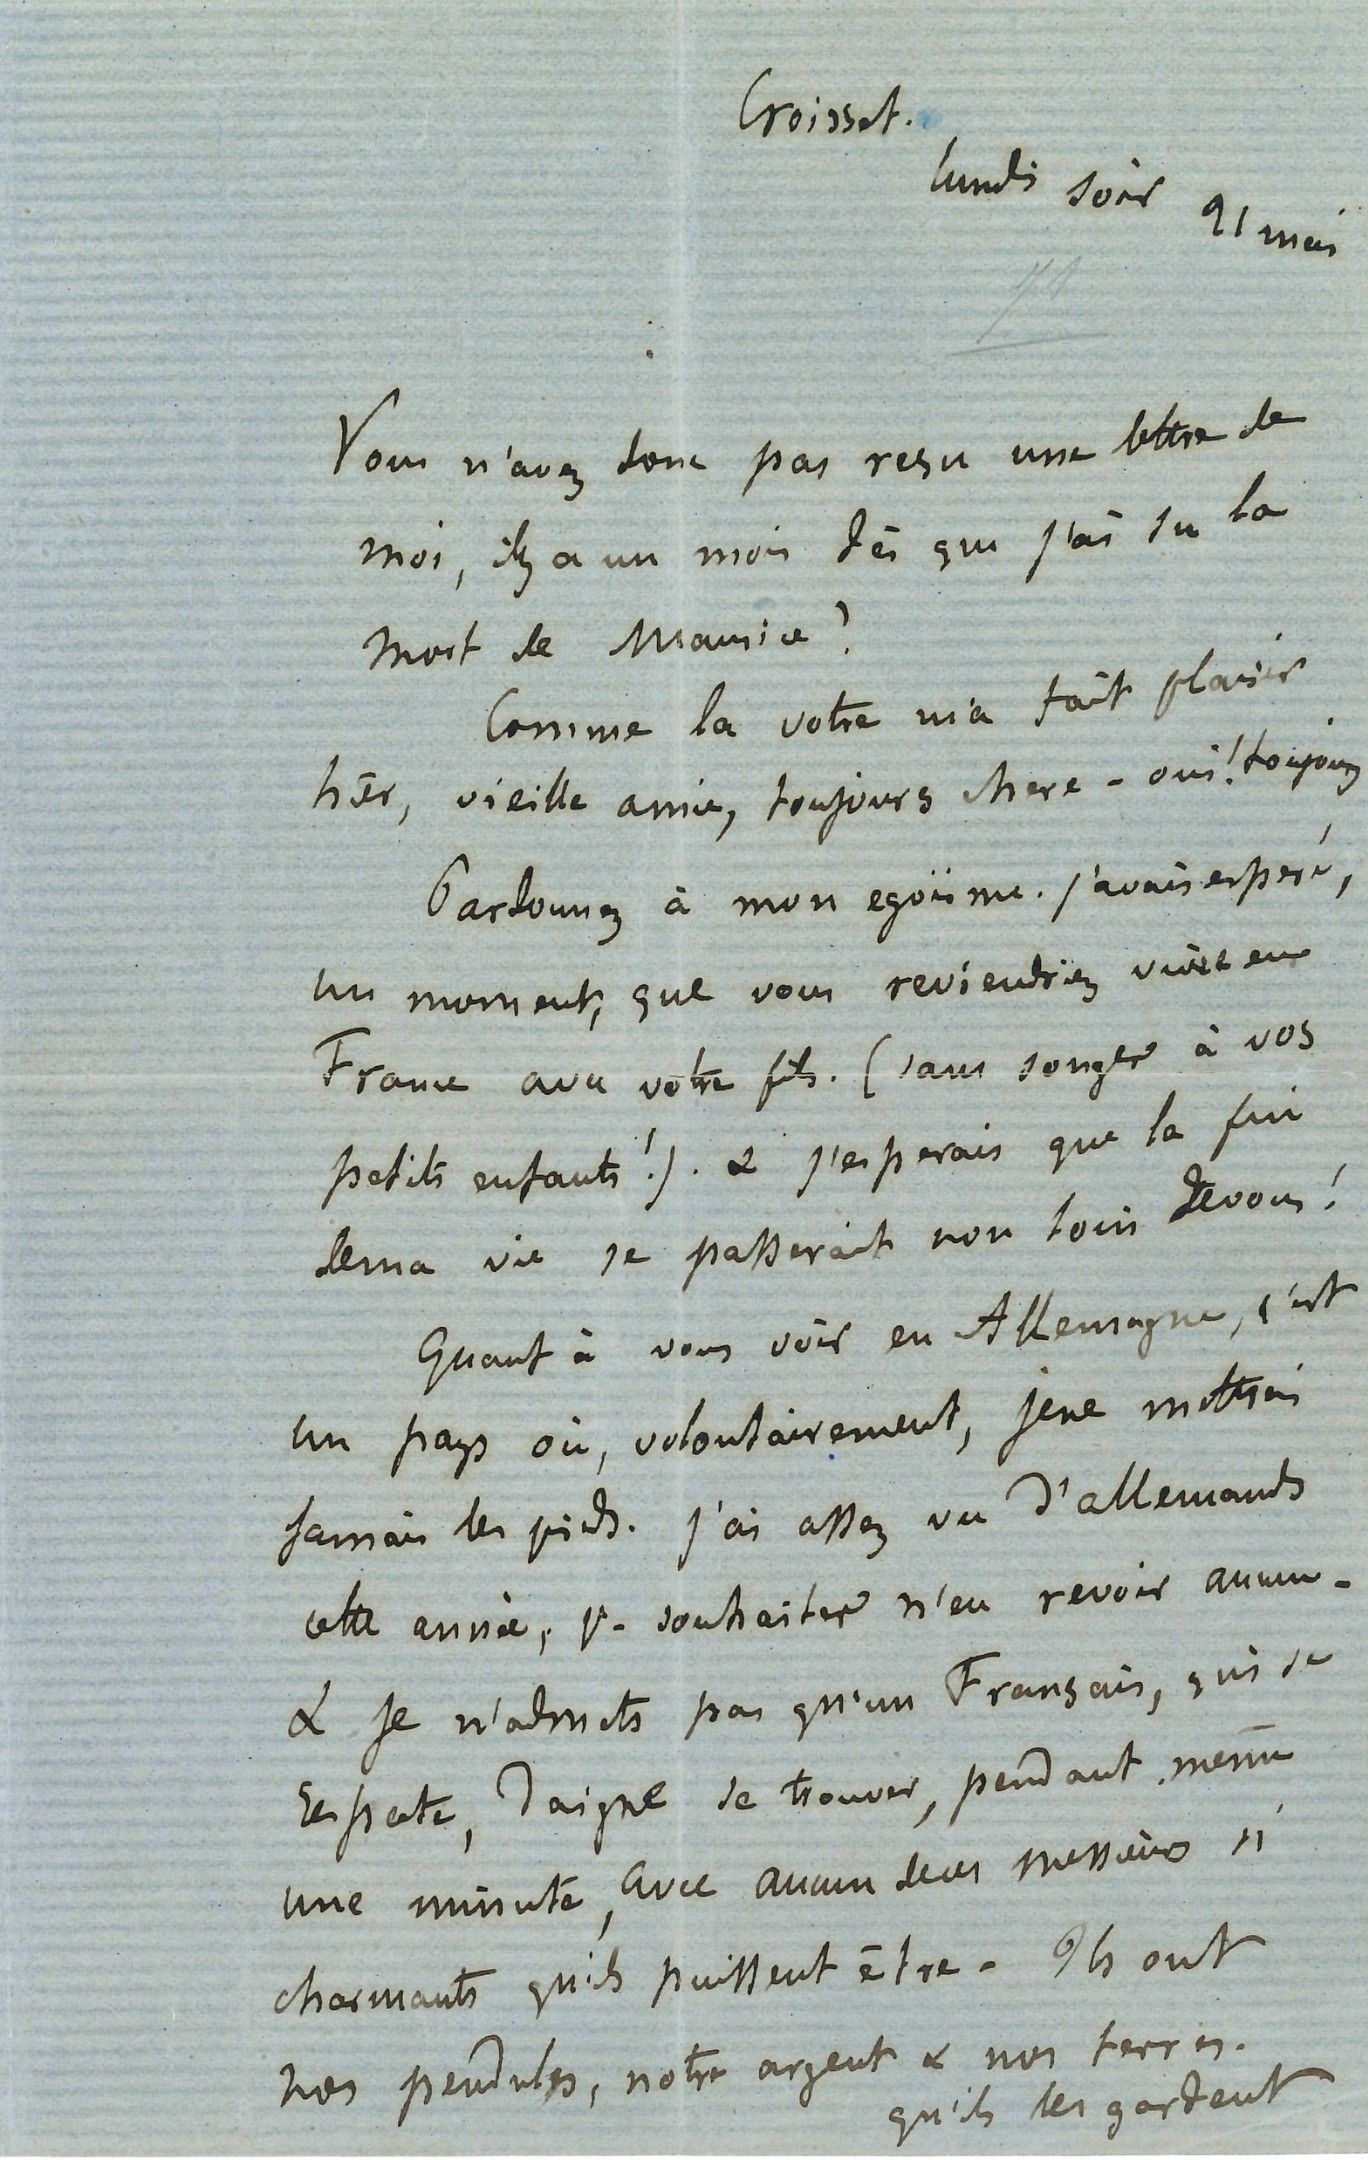 Croisset.
lundi soir 21 mai
Vous n'avez donc pas reçu une lettre de
moi, il y a un mois dès que j'ai su la
mort de Maurice?
Comme la votre m'a fait plaisir
hier, vieille amie, toujours chere - oui! toujours
Pardonnez à mon egoïsme. j'avais esperé,
un moment, que vous reviendriez vivre en
France avec votre fils. (sans songer à vos
petits enfants!). & j'esperais que la fin
de ma vie se passerait non loin de vous!
Quant à vous voir en Allemagne, c'est
un pays où, volontairement, je ne mettrai
jamais les pieds. j'ai assez vu d'allemands
cette année, pr. souhaiter n'en revoir aucun -
& je n'admets pas qu'un Français, qui se
respecte, daigne se trouver, pendant même
une minute, avec aucun de ces messieurs si
charmants qu'ils puissent être - Ils ont
nos pendules, notre argent & nos terres.
qu'ils les gardent